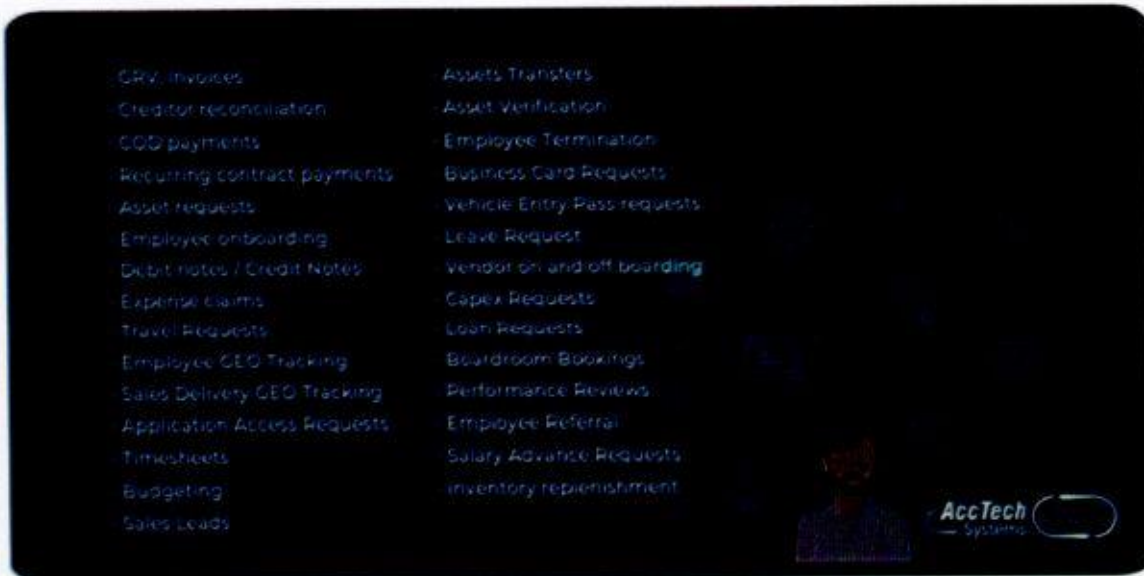 - GRV, Invoices
- Creditor reconciliation
- COD payments
- Recurring contract payments
- Asset requests
- Employee onboarding
- Debit notes / Credit Notes
- Expense claims
- Travel Requests
- Employee GEO Tracking
- Sales Delivery GEO Tracking
- Application Access Requests
- Timesheets
- Budgeting
- Sales Leads
- Assets Transfers
- Asset Verification
- Employee Termination
- Business Card Requests
- Vehicle Entry Pass requests
- Leave Request
- Vendor on and off boarding
- Capex Requests
- Loan Requests
- Boardroom Bookings
- Performance Reviews
- Employee Referral
- Salary Advance Requests
- Inventory replenishment
AccTech
Systems